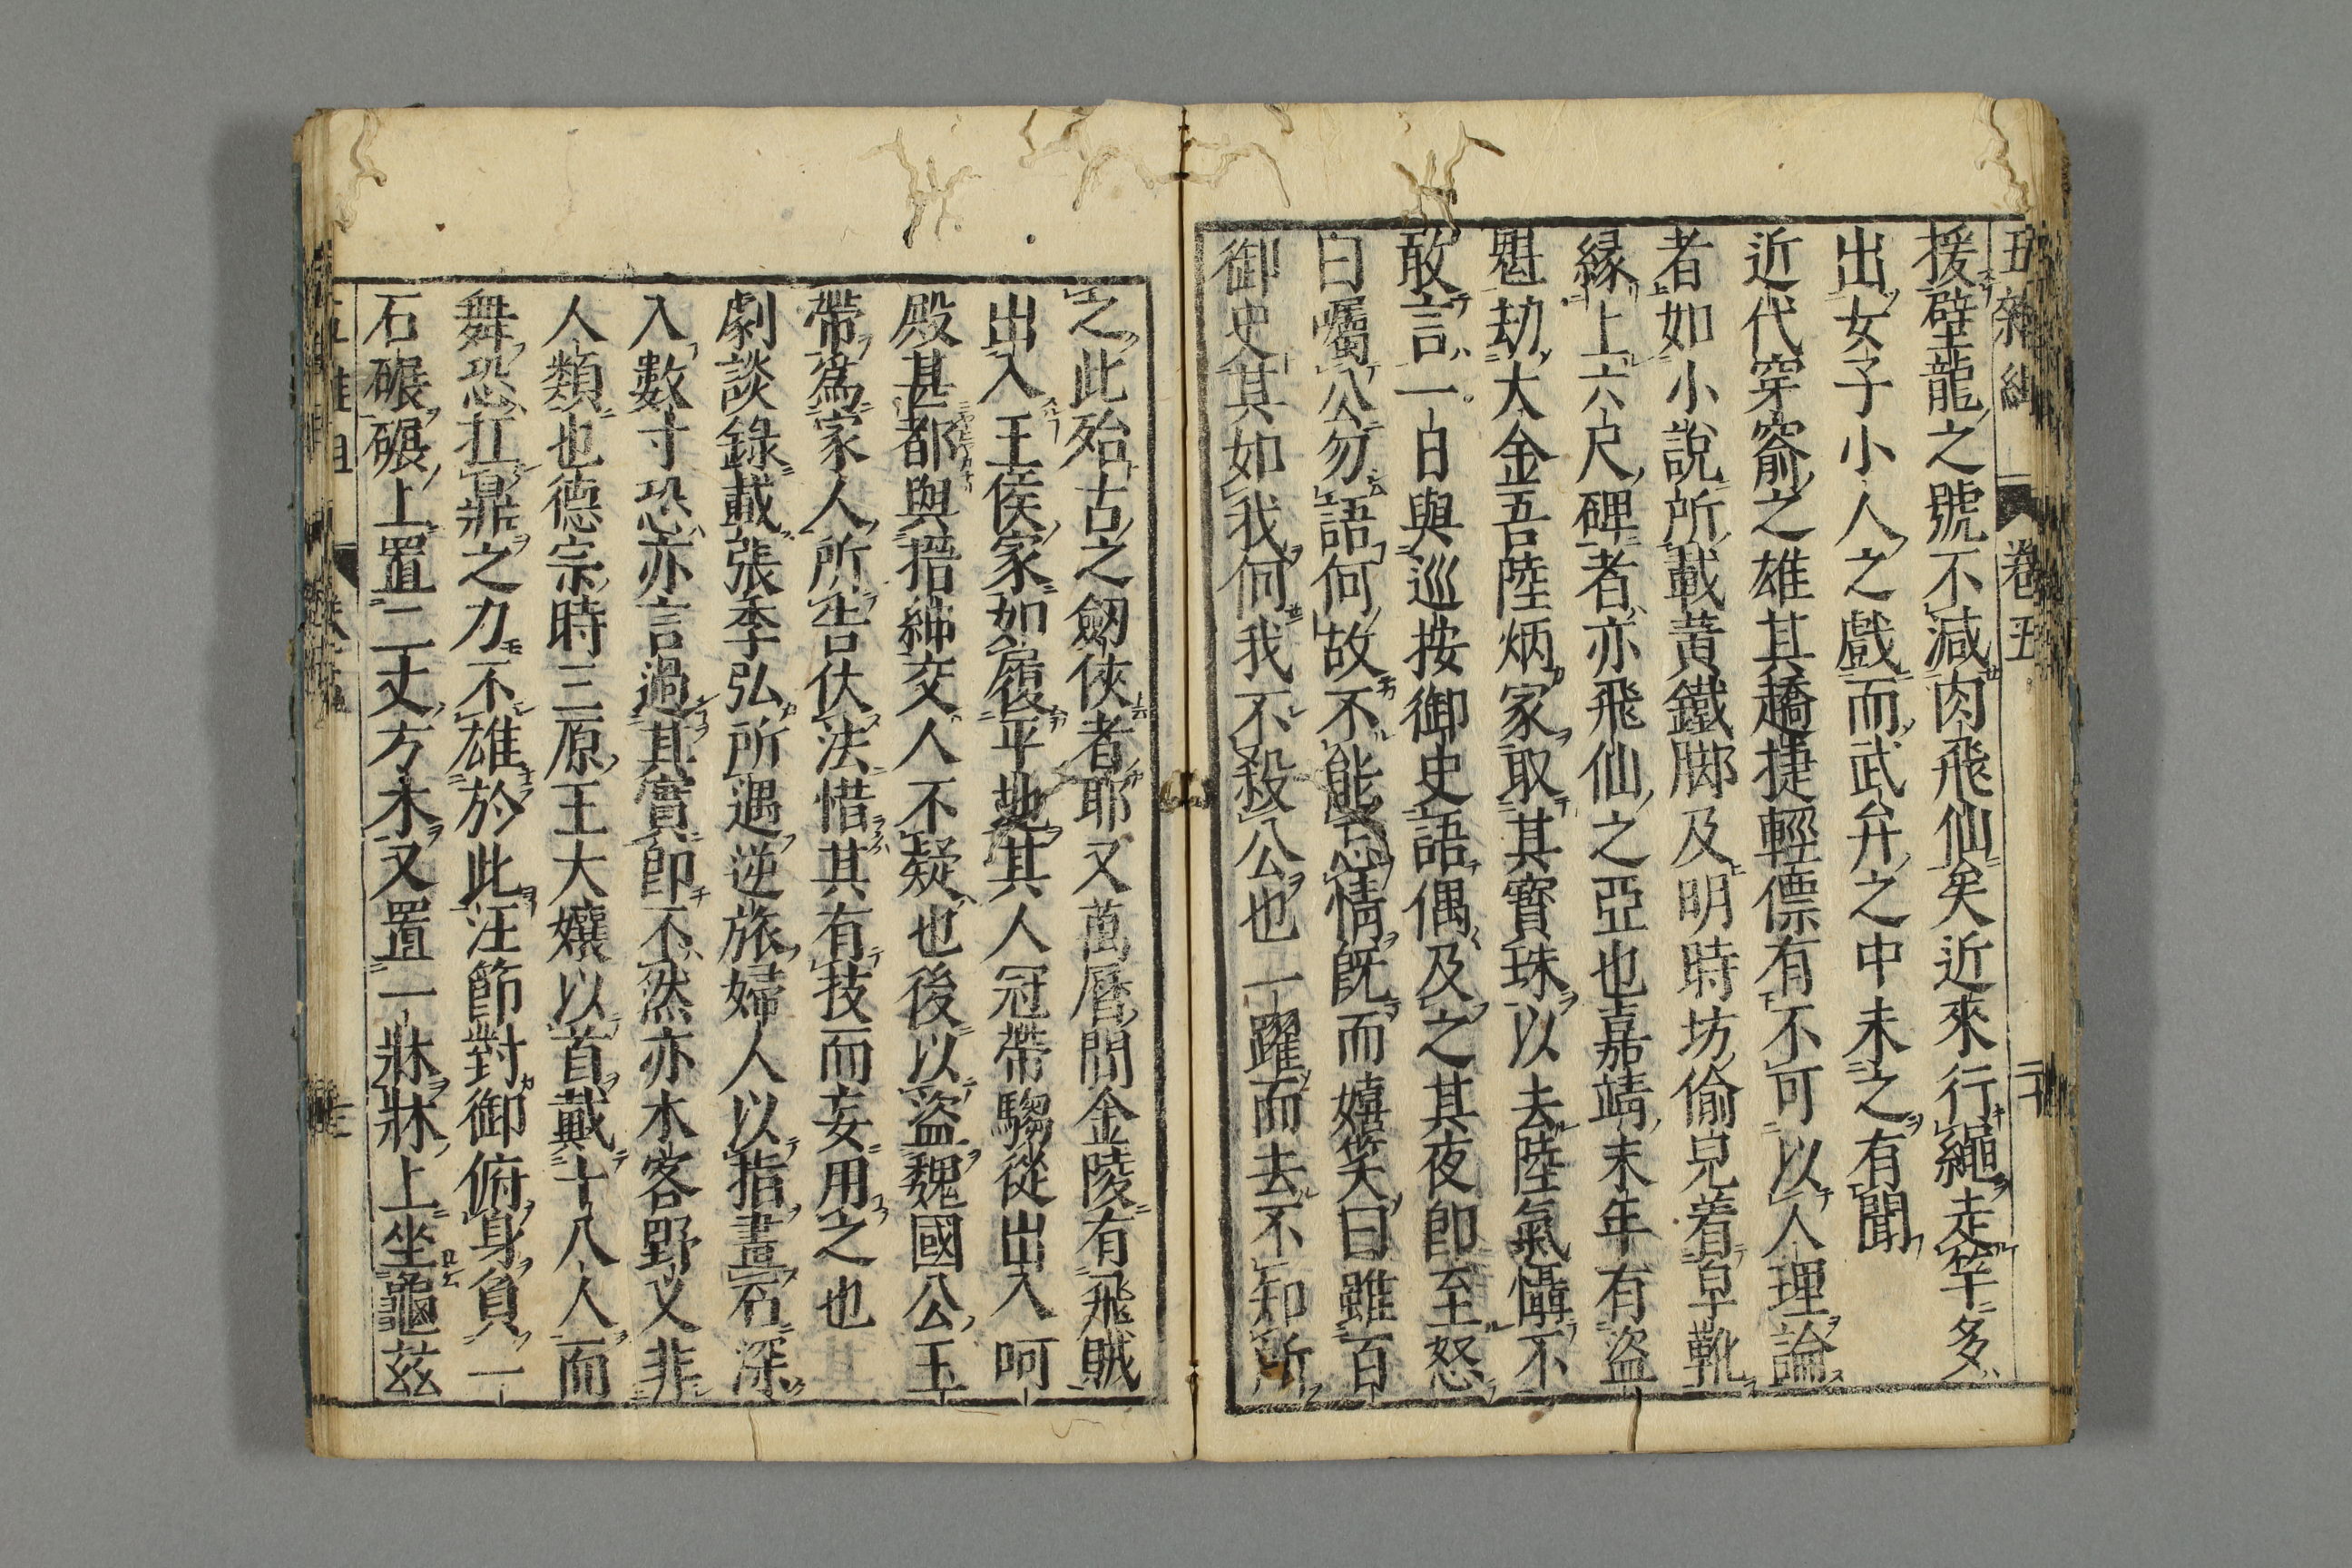 五雜組 卷五 二十
援壁龍之號不減肉飛仙矣近來行繩走竿多
出女子小人之戲而武弁之中未之有聞
近代穿窬之雄其趫捷輕僄有不可以人理論
者如小說所載黃鐵脚及明時坊偷兒着皁靴
緣上六尺碑者亦飛仙之亞也嘉靖末年有盜
魁劫大金吾陸炳家取其寶珠以去陸氣懾不
敢言一日與巡按御史語偶及之其夜即至怒
曰囑公勿語何故不能忘情旣而嬉笑曰雖百
御史其如我何我不殺公也一躍而去不知所
之此殆古之劒俠者耶又萬曆間金陵有飛賊
出入王侯家如履平地其人冠帶騶從出入呵
殿甚都與搢紳交人不疑也後以盜魏國公玉
帶爲家人所告伏法惜其有技而妄用之也
劇談錄載張季弘所遇逆旅婦人以指畫石深
入數寸恐亦言過其實即不然亦木客野叉非
人類也德宗時三原王大孃以首戴十八人而
舞恐扛鼎之力不雄於此汪節對御俯身負一
石碾碾上置二丈方木又置一牀牀上坐龜茲